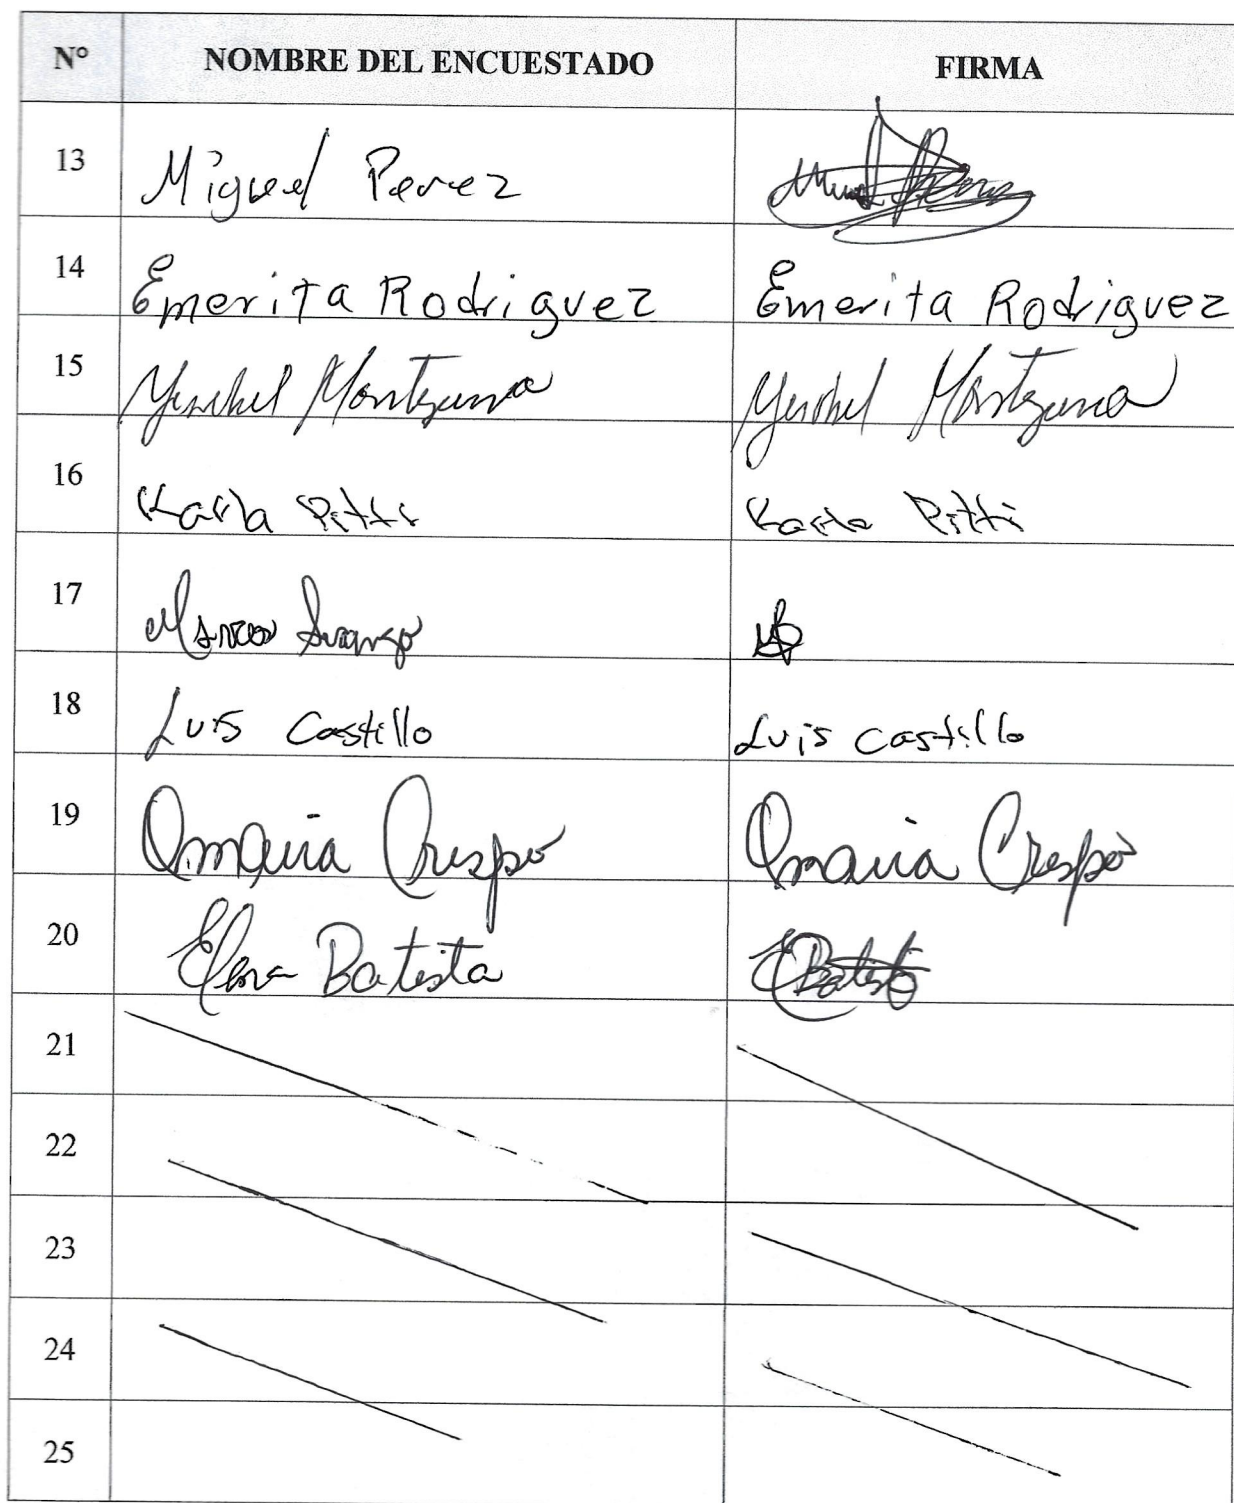 N° NOMBRE DEL ENCUESTADO FIRMA
13 Miguel Perez
14 Emerita Rodriguez Emerita Rodriguez
15 Montezuma Montezuma
16 Karla Pitti Karla Pitti
17 Marcos
18 Luis Castillo Luis Castillo
19 Omaira Crespo Omaira Crespo
20 Elena Batista EBatista
21
22
23
24
25